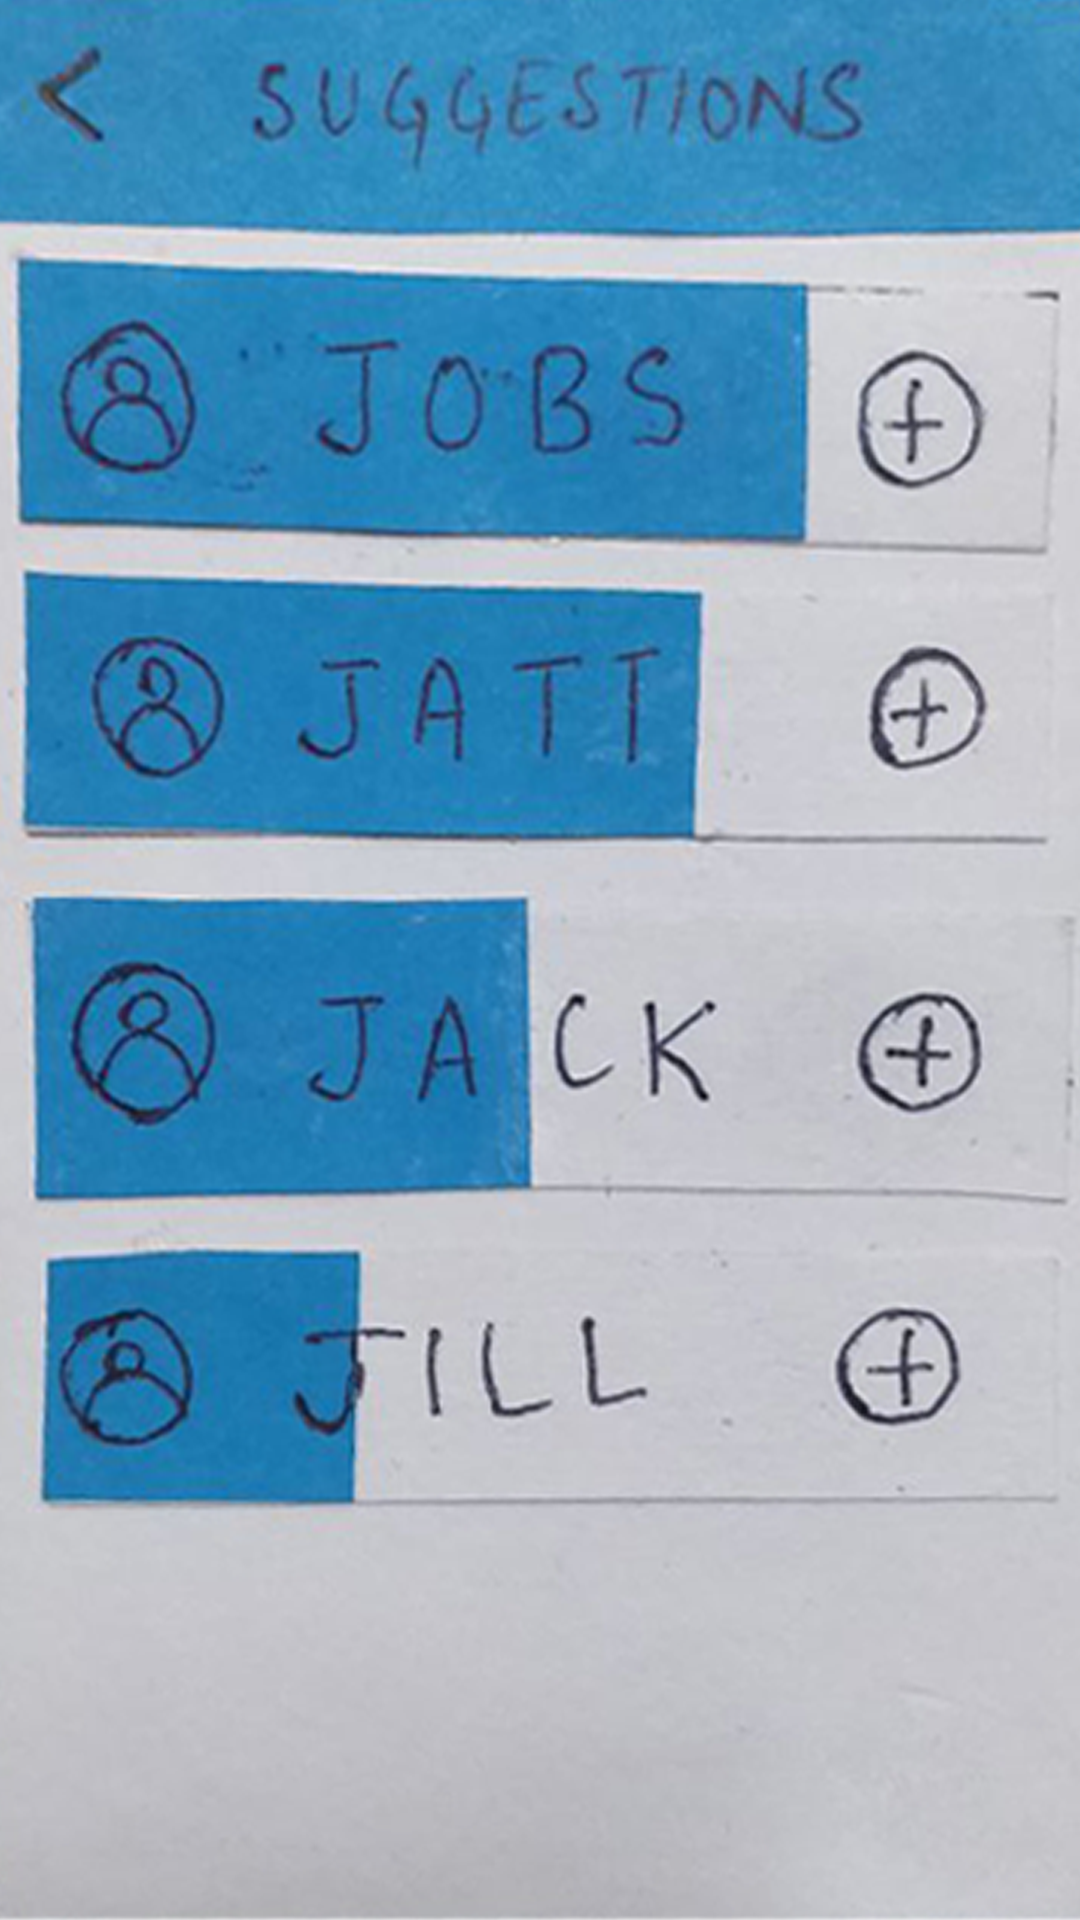 < SUGGESTIONS
JOBS
JATT
JACK
JILL